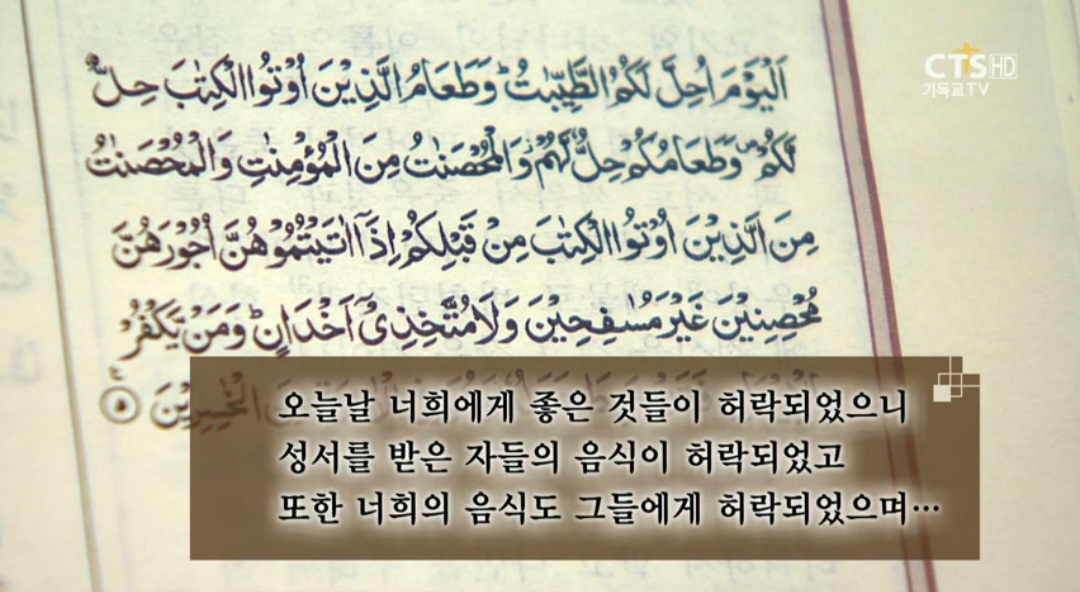 CTS HD
기독교TV
اَلْيَوْمَ اُحِلَّ لَكُمُ الطَّيِّبٰتُ ؕ وَطَعَامُ الَّذِيْنَ اُوْتُوا الْكِتٰبَ حِلٌّ
لَّكُمْ ۪ وَطَعَامُكُمْ حِلٌّ لَّهُمْ ؗ وَالْمُحْصَنٰتُ مِنَ الْمُؤْمِنٰتِ وَالْمُحْصَنٰتُ
مِنَ الَّذِيْنَ اُوْتُوا الْكِتٰبَ مِنْ قَبْلِكُمْ اِذَاۤ اٰتَيْتُمُوْهُنَّ اُجُوْرَهُنَّ
مُحْصِنِيْنَ غَيْرَ مُسٰفِحِيْنَ وَلَا مُتَّخِذِيْۤ اَخْدَانٍ ؕ وَمَنْ يَّكْفُرْ
الْخٰسِرِيْنَ ٥
오늘날 너희에게 좋은 것들이 허락되었으니
성서를 받은 자들의 음식이 허락되었고
또한 너희의 음식도 그들에게 허락되었으며…